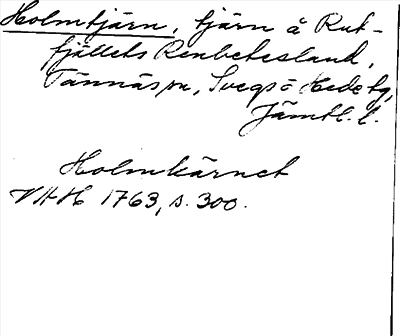 Holmtjärn, tjärn å Rut-
fjällets Renbetesland,
Tännäs sn, Svegs o Hede tg,
Jämtl. l.
Holmkärnet
VHAH 1763, s. 300.